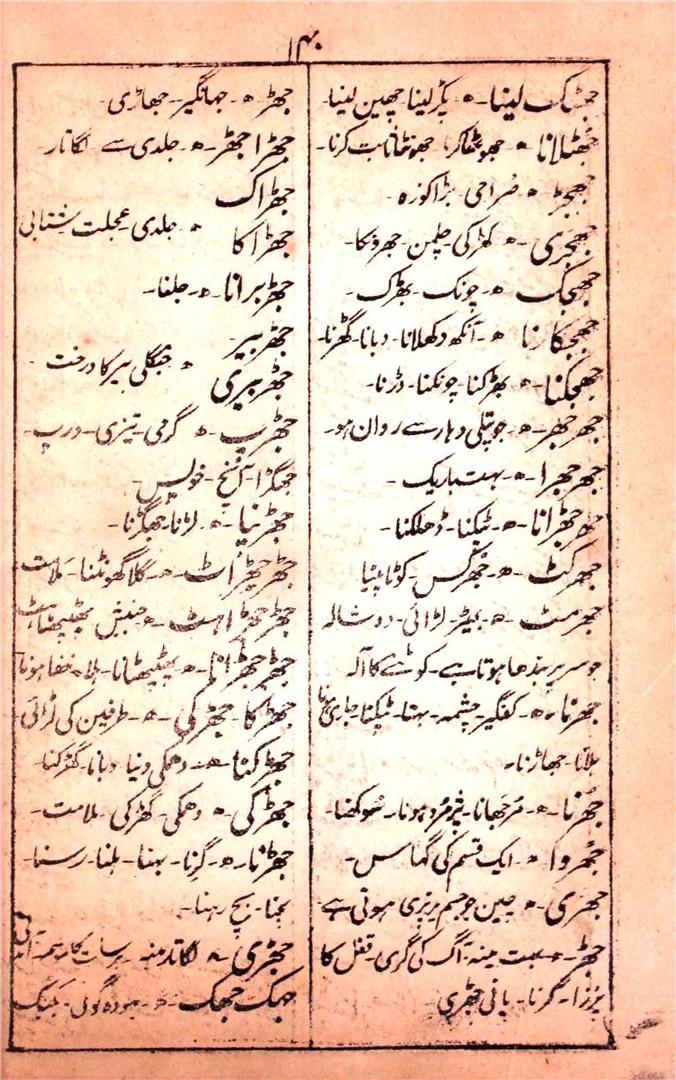 ۱۴۰
جھٹک لینا۔ ھ۔ پکڑ لینا۔ چھین لینا۔
جھٹلانا۔ ھ۔ جھوٹھا کرنا۔ جھوٹھا ثابت کرنا۔
جھجڑ۔ ھ۔ صراحی۔ بڑا کوزہ۔
جھجری۔ ھ۔ کھڑکی۔ چلمن۔ جھروکا۔
جھجک۔ ھ۔ چونک۔ بھڑک۔
جھجکارنا۔ ھ۔ آنکھ دکھلانا۔ دبانا۔ گھڑنا۔
جھجکنا۔ ھ۔ بھڑکنا۔ چونکنا۔ ڈرنا۔
جھرجھر۔ ھ۔ جو پتلی دھار سے رواں ہو۔
جھرجھرا۔ ھ۔ بہت باریک۔
جھرجھرانا۔ ھ۔ ٹپکنا۔ ڈھلکنا۔
جھرکٹ۔ ھ۔ کوٹا پیٹا
جھرمٹ۔ ھ۔ بھیڑ۔ لڑائی۔ دوشالہ
جو سر پر بندھا ہوتا ہے۔ کوٹنے کا آلہ
جھرنا۔ ھ۔ کفگیر۔ چشمہ۔ بہنا۔ ٹپکنا۔ جاری ہونا
ہلانا۔ جھاڑنا۔
جھرنا۔ ھ۔ مرجھانا۔ پژمردہ ہونا۔ سوکھنا۔
جھروا۔ ھ۔ ایک قسم کی گھاس۔
جھری۔ ھ۔ چین جو جسم پر پڑی ہوتی ہے۔
جھڑ۔ ھ۔ بہت مینہ۔ آگ کی گرمی۔ قفل کا
پرزا۔ گرنا۔ پانی جھڑی۔
جھڑ۔ ھ۔ جہانگیر۔ جھاڑی۔
جھڑا جھڑ۔ ھ۔ جلدی سے۔ لگاتار۔
جھڑاک
جھڑاکا ھ۔ جلدی۔ عجلت۔ شتابی
جھڑبرانا۔ ھ۔ جلنا۔
جھڑبیر۔
جھڑبیری ھ۔ جنگلی بیر کا درخت
جھڑپ۔ ھ۔ گرمی۔ تیزی۔
جھگڑا۔
جھڑنیا۔ ھ۔ لڑنا۔ جھگڑنا۔
ھ۔ گلا گھونٹنا۔ ملامت
جھڑجھڑاہٹ۔ ھ۔ جنبش۔
جھڑجھڑانا۔ ھ۔ ہلانا۔ خفا ہونا
جھڑکا جھڑکی۔ ھ۔ طرفین کی لڑائی۔
جھڑکنا۔ ھ۔ دھمکی دینا۔ دبانا۔ گھڑکنا۔
جھڑکی۔ ھ۔ دھمکی۔ گھڑکی۔ ملامت۔
جھڑنا۔ ھ۔ گرنا۔ بہنا۔ ہلنا۔ رسنا۔
بجنا۔ بچ رہنا۔
جھڑی۔ ھ۔ لگاتار مینہ
جھک جھک۔ ھ۔ بیہودہ گوئی۔